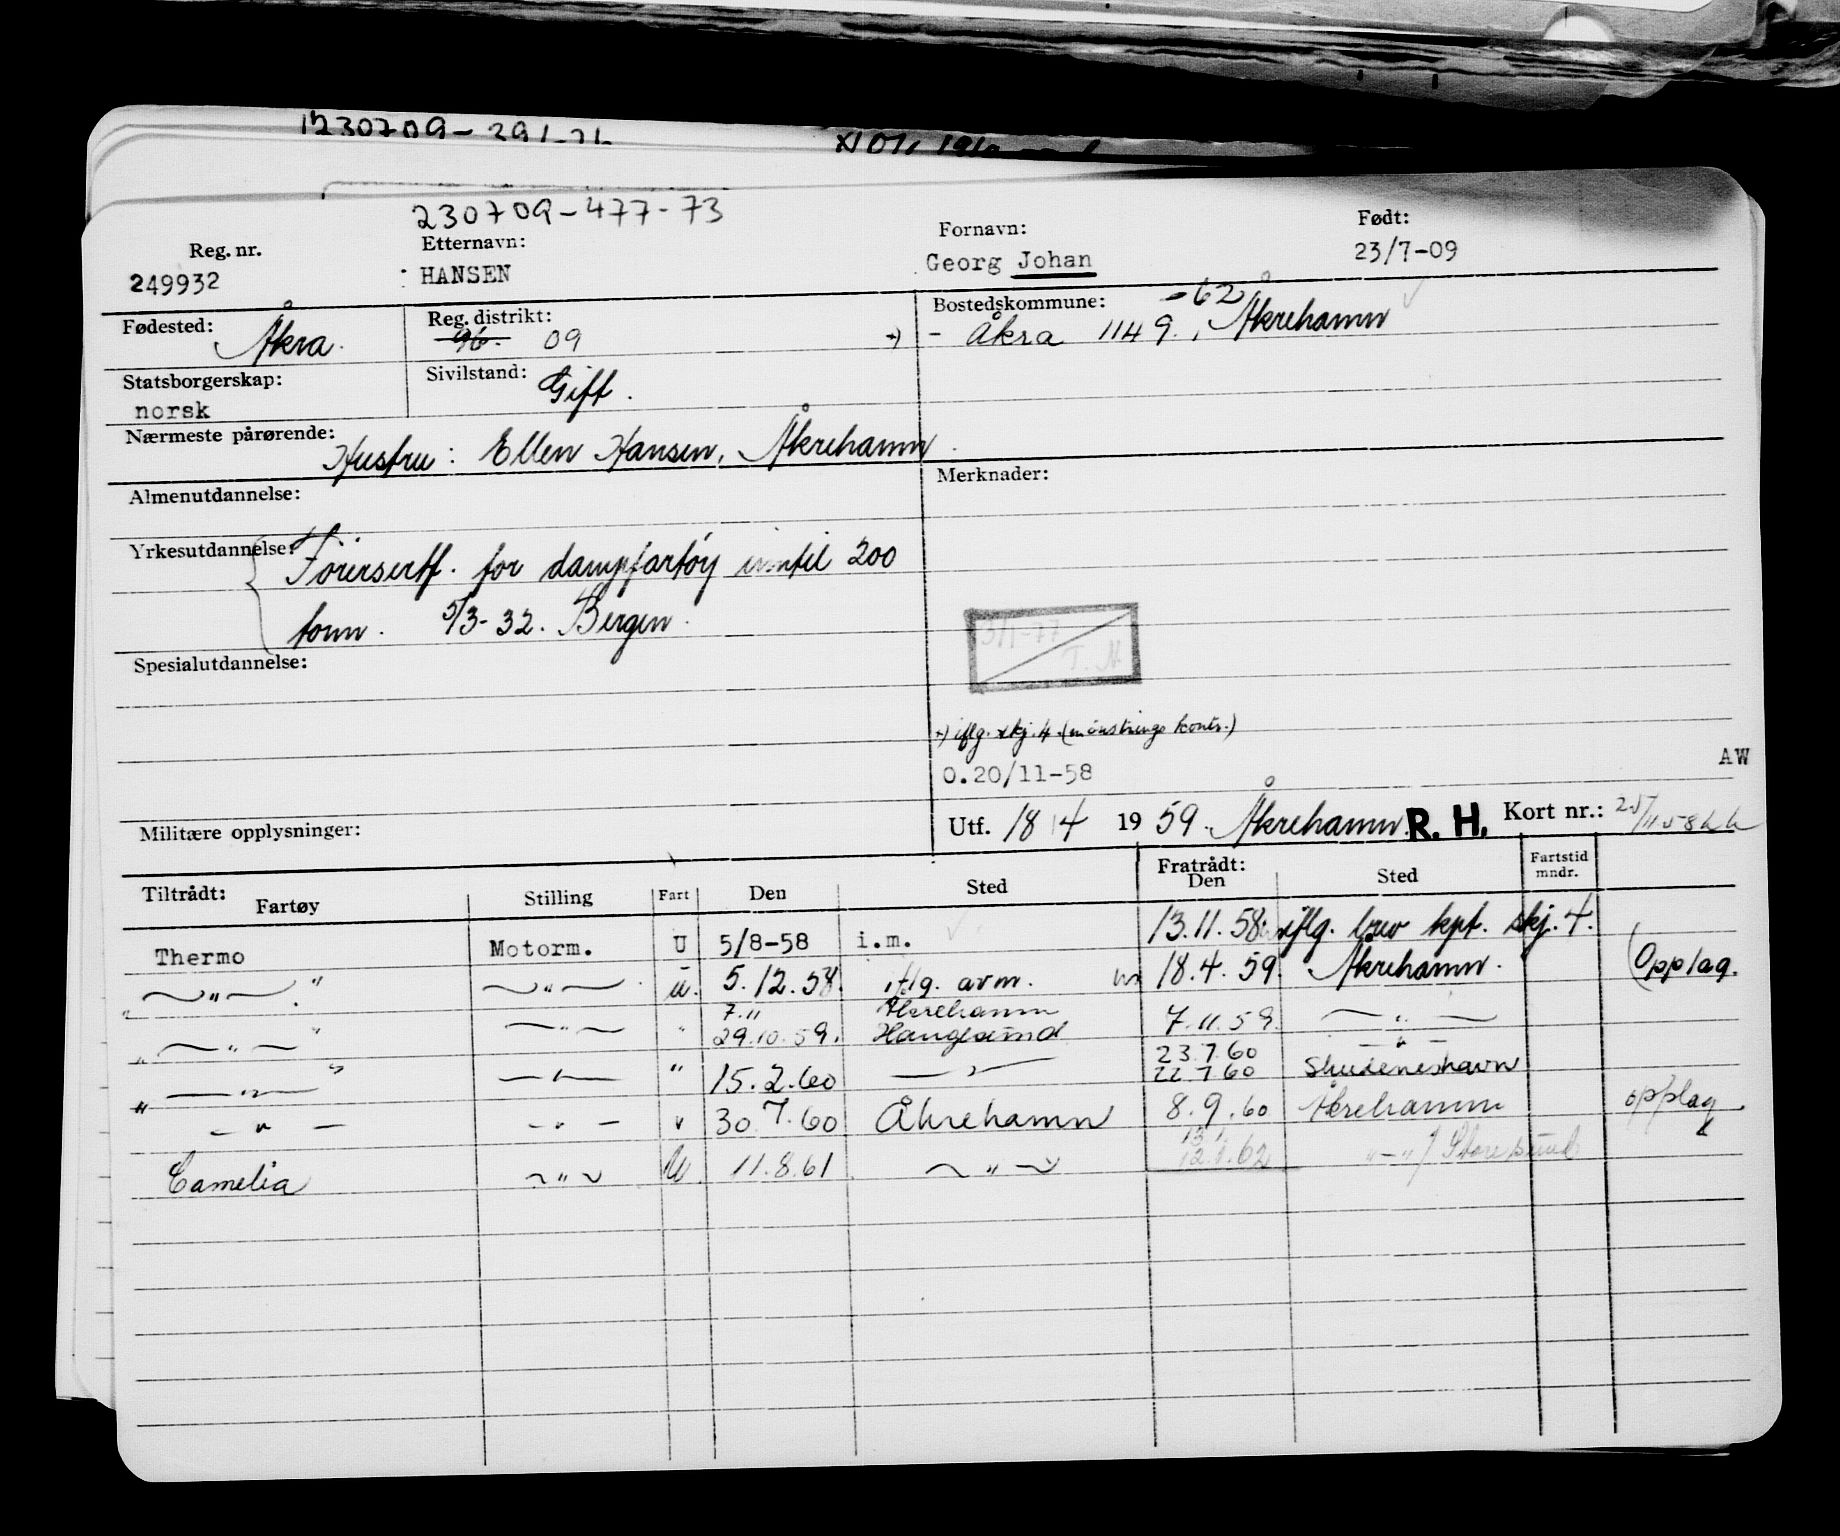 230709-477-73
Reg. nr. Etternavn: Fornavn: Født:
249932 HANSEN Georg Johan 23/7-09
Fødested: Åkra. Reg. distrikt: 09
Bostedskommune: -62
+) - Åkra 1149., Åkrehamn
Statsborgerskap: norsk Sivilstand: Gift.
Nærmeste pårørende: Hustru: Ellen Hansen, Åkrehamn.
Almenutdannelse: Merknader:
Yrkesutdannelse: Førersertf. for dampfartøy inntil 200
tonn. 5/3-32. Bergen.
3/1-77
T. N.
Spesialutdannelse:
+) iflg. skj. 4 (mønstrings kontr.)
0.20/11-58 AW
Militære opplysninger: Utf. 18/4 19 59. Åkrehamn. R. H. Kort nr.:
Tiltrådt: Fratrådt: Fartstid mndr.
Fartøy Stilling Fart Den Sted Den Sted
Thermo Motorm. U 5/8-58 i.m. 13.11.58 iflg. brev kpt. skj. 4.
—"— " —"— u. 5.12.58. iflg. avm. 18.4.59. Åkrehamn. (Opplag.
7.11 Åkrehamn
—"— " —"— " 29.10.59. Haugesund 7.11.59. —"—
23.7.60 —"—
" —"— " —"— " 15.2.60 —"— 22.7.60 Skudeneshavn
—"— —"— " 30.7.60 Åkrehamn 8.9.60 Åkrehamn opplag
13/1
Camelia —"— U. 11.8.61. —"— 12.1.62 —"—/ Storesund